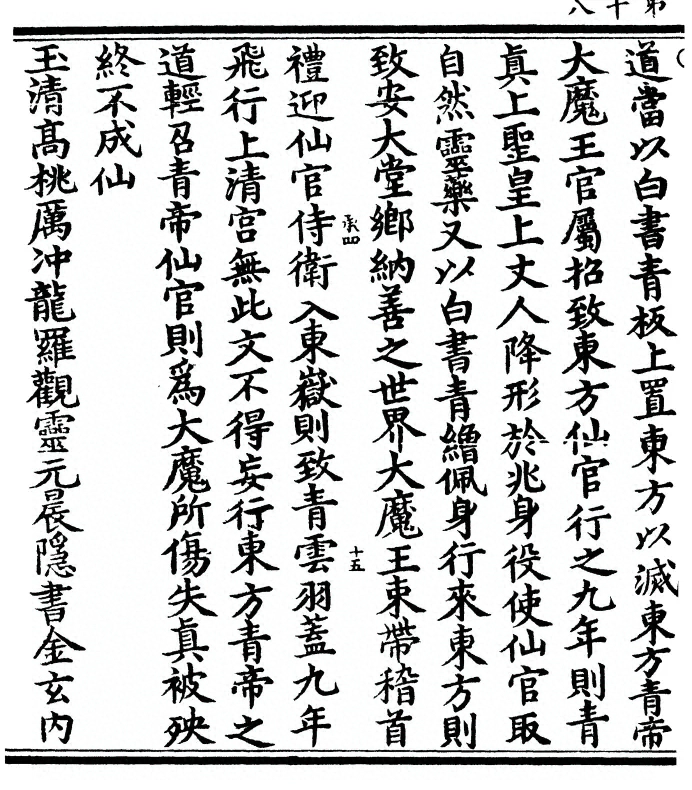 第十八
道當以白書青板上置東方以滅東方青帝
大魔王官屬招致東方仙官行之九年則青
眞上聖皇上丈人降形於兆身役使仙官取
自然靈藥又以白書青繒佩身行來東方則
致安大堂鄉納善之世界大魔王束帶稽首
禮迎仙官侍衛入東嶽則致青雲羽蓋九年
承四
十五
飛行上清宮無此文不得妄行東方青帝之
道輕召青帝仙官則爲大魔所傷失眞被殃
終不成仙
玉清高桃厲冲龍羅觀靈元晨隱書金玄内